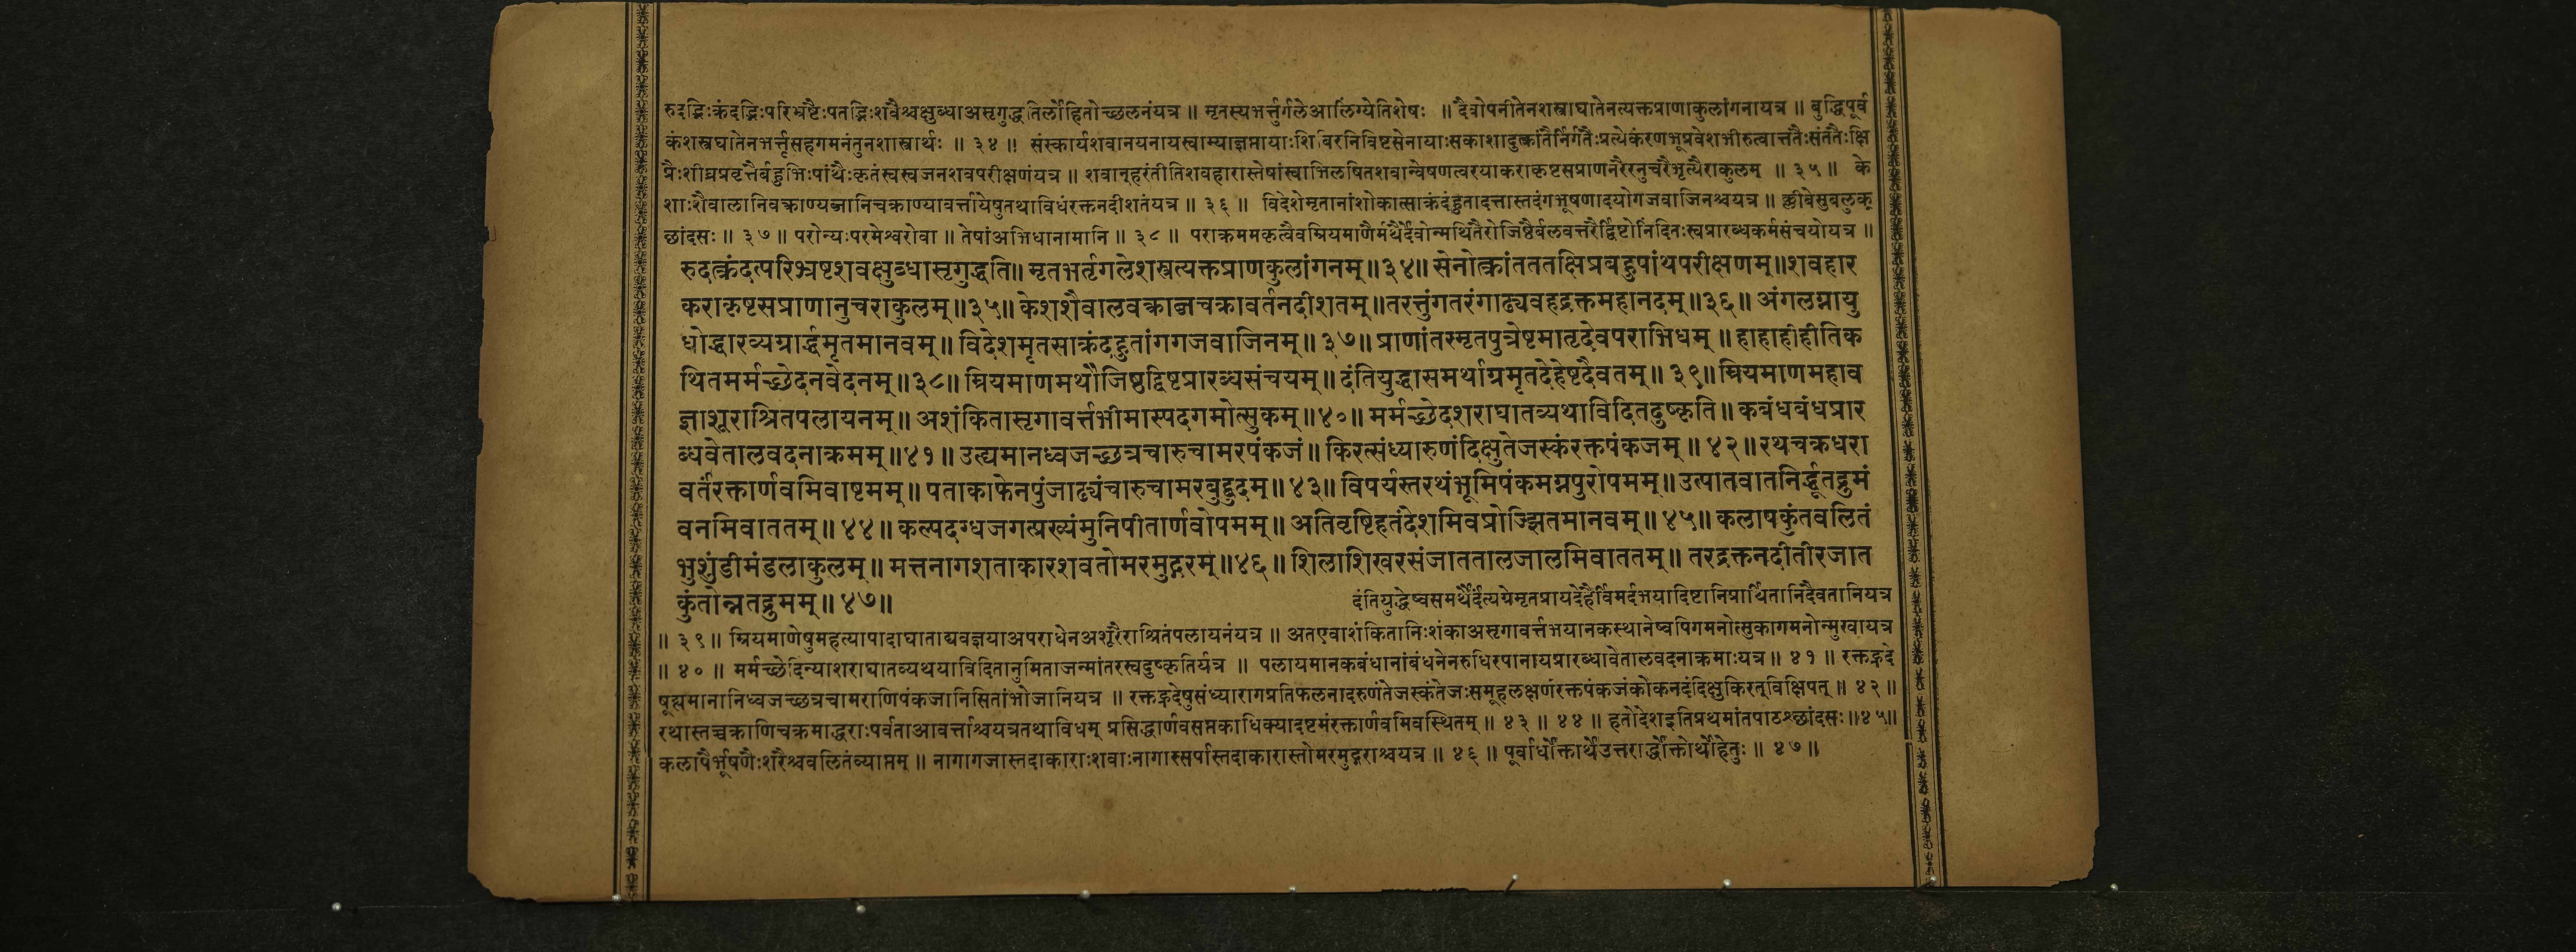 रुदद्भिःक्रंदद्भिःपरिभ्रष्टैःपतद्भिःशवैश्चक्षुब्धाअसृगुद्धतिर्लोहितोच्छलनंयत्र ॥ मृतस्यभर्त्तुर्गलेआलिंग्येतिशेषः ॥ दैवोपनीतेनशस्त्राघातेनत्यक्तप्राणाकुलांगनायत्र ॥ बुद्धिपूर्व
कंशस्त्रघातेनभर्त्तृसहगमनंतुनशास्त्रार्थः ॥ ३४ ॥ संस्कार्यशवानयनायस्वाम्याज्ञप्तायाःशिबिरनिविष्टसेनायाःसकाशादुत्क्रांतैर्निर्गतैःप्रत्येकंरणभूप्रवेशभीरुत्वात्ततैःसंततैःक्षि
प्रैःशीघ्रप्रवृत्तैर्बहुभिःपांथैःकृतंस्वस्वजनशवपरीक्षणंयत्र ॥ शवान्हरंतीतिशवहारास्तेषांस्वाभिलषितशवान्वेषणत्वरयाकराकृष्टसप्राणनरैरनुचरैर्भृत्यैराकुलम् ॥ ३५ ॥ के
शाःशैवालानिवक्त्राण्यब्जानिचक्राण्यावर्त्तायेषुतथाविधंरक्तनदीशतंयत्र ॥ ३६ ॥ विदेशेमृतानांशोकात्साक्रंदंद्रुतादत्तास्तदंगभूषणादयोगजवाजिनश्चयत्र ॥ क्लीबेसुबलुक्
छांदसः ॥ ३७ ॥ परोन्यःपरमेश्वरोवा ॥ तेषांअभिधानामानि ॥ ३८ ॥ पराक्रममकृत्वैवम्रियमाणैर्मथैर्दैवोन्मथितैरोजिष्ठैर्बलवत्तरैर्द्विष्टोनिंदितःस्वप्रारब्धकर्मसंचयोयत्र ॥
रुदत्क्रंदत्परिभ्रष्टशवक्षुब्धासृगुद्धति॥ मृतभर्तृगलेशस्त्रत्यक्तप्राणकुलांगनम्॥३४॥ सेनोत्क्रांतततक्षिप्रबहुपांथपरीक्षणम्॥शवहार
कराकृष्टसप्राणानुचराकुलम्॥३५॥ केशशैवालवक्त्राब्जचक्रावर्तनदीशतम्॥तरत्तुंगतरंगाढ्यवहद्रक्तमहानदम्॥३६॥ अंगलग्नायु
धोद्धारव्यग्रार्द्धमृतमानवम्॥ विदेशमृतसाक्रंदद्रुतांगगजवाजिनम्॥३७॥ प्राणांतस्मृतपुत्रेष्टमातृदेवपराभिधम् ॥ हाहाहीहीतिक
थितमर्मच्छेदनवेदनम्॥३८॥ म्रियमाणमथौजिष्ठद्विष्टप्रारब्धसंचयम्॥ दंतियुद्धासमर्थाग्रमृतदेहेष्टदैवतम्॥ ३९॥ म्रियमाणमहाव
ज्ञाशूराश्रितपलायनम्॥ अशंकितासृगावर्त्तभीमास्पदगमोत्सुकम्॥४०॥ मर्मच्छेदशराघातव्यथाविदितदुष्कृति॥ कबंधबंधप्रार
ब्धवेतालवदनाक्रमम्॥४१॥ उह्यमानध्वजच्छत्रचारुचामरपंकजं॥ किरत्संध्यारुणंदिक्षुतेजस्कंरक्तपंकजम् ॥ ४२॥ रथचक्रधरा
वर्तंरक्तार्णवमिवाष्टमम्॥ पताकाफेनपुंजाढ्यंचारुचामरबुद्बुदम्॥४३॥ विपर्यस्तरथंभूमिपंकमग्नपुरोपमम्॥उत्पातवातनिर्द्धूतद्रुमं
वनमिवाततम्॥ ४४॥ कल्पदग्धजगत्प्रख्यंमुनिपीतार्णवोपमम्॥ अतिवृष्टिहतंदेशमिवप्रोज्झितमानवम्॥ ४५॥ कलापकुंतवलितं
भुशुंडीमंडलाकुलम्॥ मत्तनागशताकारशवतोमरमुद्गरम्॥४६॥ शिलाशिखरसंजाततालजालमिवाततम्॥ तरद्रक्तनदीतीरजात
कुंतोन्नतद्रुमम्॥ ४७॥
दंतियुद्धेष्वसमर्थैर्दंत्यग्रेमृतप्रायदेहैर्विमर्दभयादिष्टानिप्रार्थितानिदैवतानियत्र
॥ ३९॥ म्रियमाणेषुमहत्यापादाघाताद्यवज्ञयाअपराधेनअशूरैराश्रितंपलायनंयत्र ॥ अतएवाशंकितानिःशंकाअसृगावर्त्तभयानकस्थानेष्वपिगमनोत्सुकागमनोन्मुखायत्र
॥ ४० ॥ मर्मच्छेदिन्याशराघातव्यथयाविदितानुमिताजन्मांतरस्वदुष्कृतिर्यत्र ॥ पलायमानकबंधानांबंधनेनरुधिरपानायप्रारब्धावेतालवदनाक्रमाःयत्र॥ ४१ ॥ रक्तह्रदे
षूह्यमानानिध्वजच्छत्रचामराणिपंकजानिसितांभोजानियत्र ॥ रक्तह्रदेषुसंध्यारागप्रतिफलनादरुणंतेजस्कंतेजःसमूहलक्षणंरक्तपंकजंकोकनदंदिक्षुकिरत्विक्षिपत्॥ ४२॥
रथास्तच्चक्राणिचक्रमाद्धराःपर्वताआवर्त्ताश्चयत्रतथाविधम् प्रसिद्धार्णवसप्तकाधिक्यादष्टमंरक्तार्णवमिवस्थितम्॥ ४३ ॥ ४४ ॥ हतोदेशइतिप्रथमांतपाठश्छांदसः॥४५॥
कलापैर्भूषणैःशरैश्चवलितंव्याप्तम् ॥ नागागजास्तदाकाराःशवाःनागास्सर्पास्तदाकारास्तोमरमुद्गराश्चयत्र ॥ ४६ ॥ पूर्वार्धोक्तार्थेउत्तरार्द्धोक्तोर्थोहेतुः ॥ ४७॥